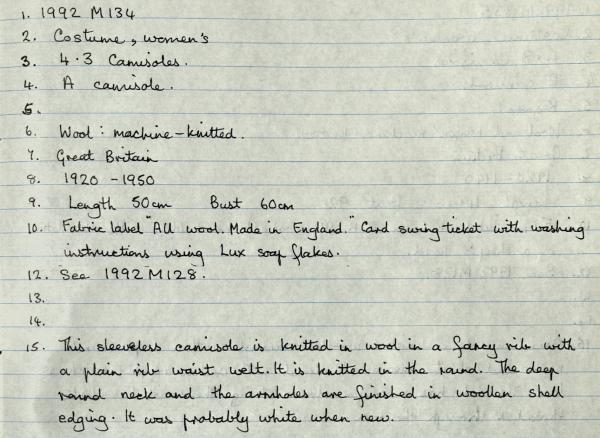 1. 1992 M134
2. Costume, women's
3. 4.3 Camisoles.
4. A camisole.
5.
6. Wool: machine-knitted.
7. Great Britain
8. 1920 - 1950
9. Length 50cm Bust 60cm
10. Fabric label "All wool. Made in England." Card swing ticket with washing
instructions using Lux soap flakes.
12. See 1992 M128.
13.
14.
15. This sleeveless camisole is knitted in wool in a fancy rib with
a plain rib waist welt. It is knitted in the round. The deep
round neck and the armholes are finished in woollen shell
edging. It was probably white when new.